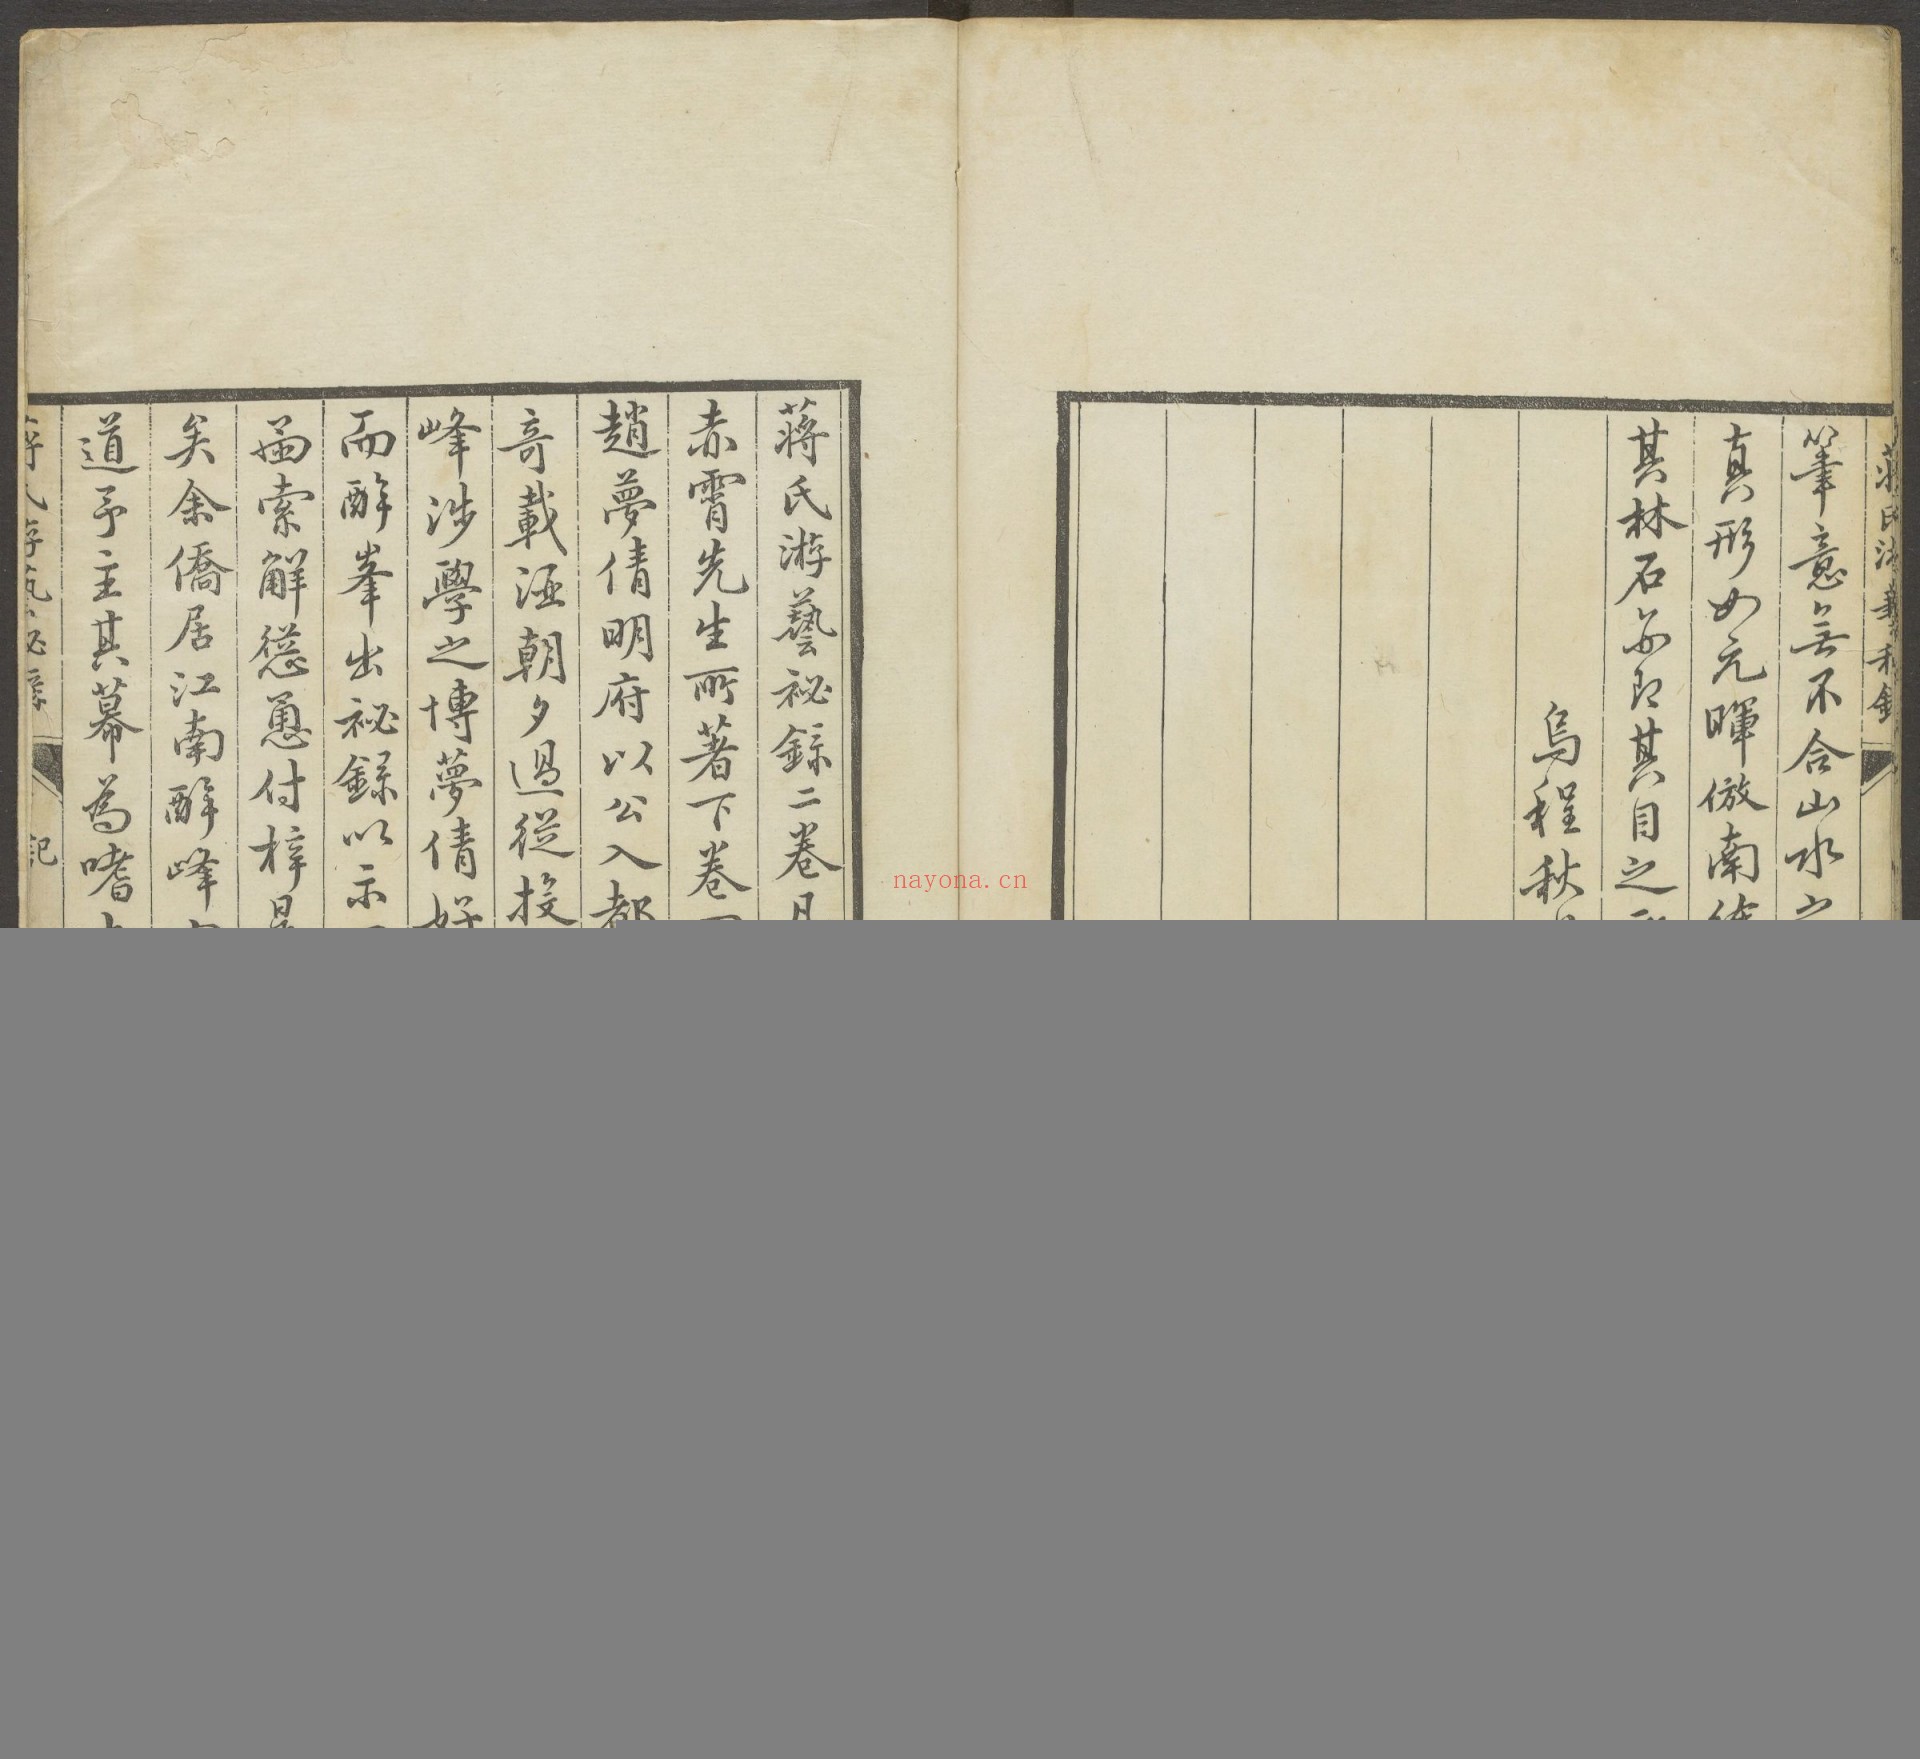 蔣氏游藝秘錄
筆意無不合山水之
真形如元暉倣南徐
其林石亦即其目之所
烏程秋
蔣氏游藝祕錄二卷
赤霄先生所著下卷
趙夢倩明府以公入都
奇載涇朝夕過從投
峰涉學之博夢倩好
而醉峯出祕錄以示
函索解慫恿付梓
矣余僑居江南醉峰
道予主其幕為嗜
蔣氏游藝祕錄
記
nayona.cn